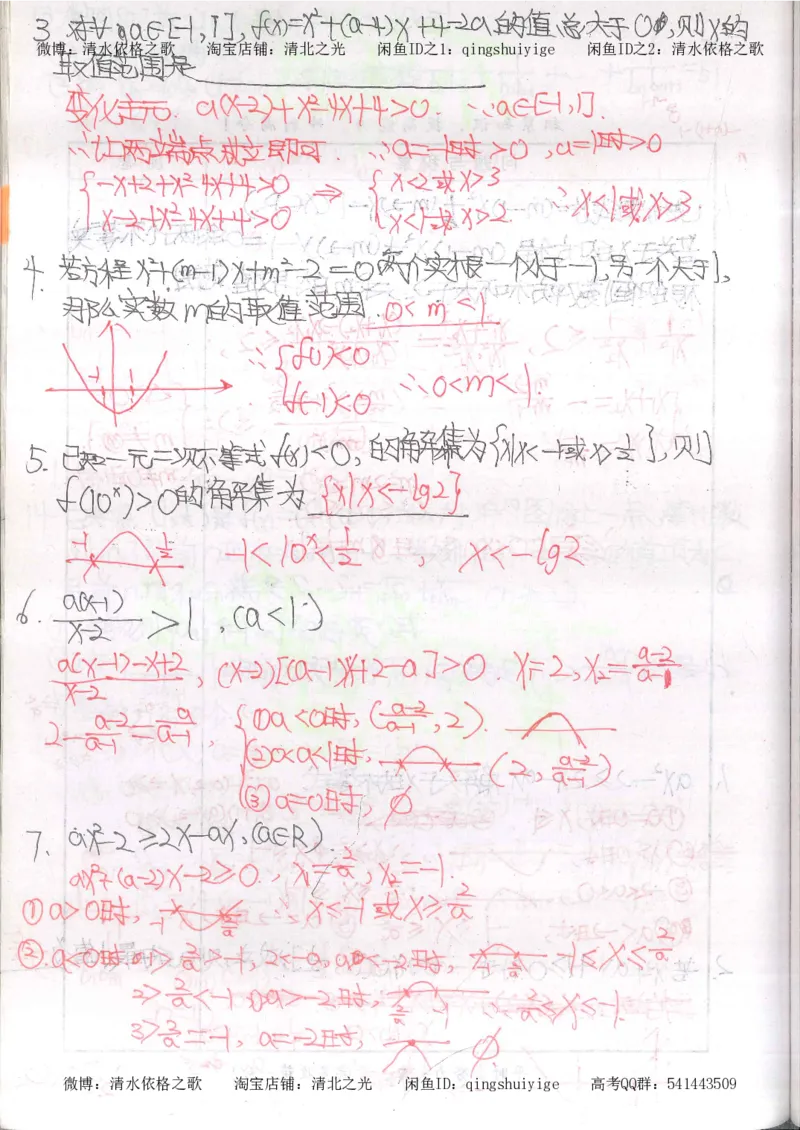 3. 对∀a∈[-1,1], f(x)=x²+(a-4)x+4-2a的值总大于0, 则x的
微博：清水依格之歌 淘宝店铺：清北之光 闲鱼ID之1：qingshuiyige 闲鱼ID之2：清水依格之歌
取值范围是
变化主元. a(x-2)+x²-4x+4>0 ∵a∈[-1,1].
∴让两端点成立即可. ∴a=-1时>0, a=1时>0
{-x+2+x²-4x+4>0 ⇒ {x<2或x>3
x-2+x²-4x+4>0 x<1或x>2 ∴x<1或x>3.
4. 若方程x²+(m-1)x+m²-2=0两个实根一个小于-1,另一个大于1,
那么实数m的取值范围 0<m<1
-1 1 ∴{f(1)<0
f(-1)<0 ∴0<m<1.
5. 已知一元二次不等式f(x)<0, 的解集为{x|x<-1或x>1/2}, 则
f(10ˣ)>0的解集为 {x|x<-lg2}
-1 1/2 -1<10ˣ<1/2, x<-lg2
6. a(x-1)/(x-2) >1, (a<1)
(a(x-1)-x+2)/(x-2), (x-2)[(a-1)x+2-a]>0. x₁=2, x₂=(a-2)/(a-1)
2-(a-2)/(a-1)=a/(a-1), {①a<0时, ((a-2)/(a-1), 2).
②0<a<1时, (2, (a-2)/(a-1))
③a=0时, ∅
7. ax²-2≥2x-ax, (a∈R).
ax²+(a-2)x-2≥0., x₁=2/a, x₂=-1.
①a>0时, -1 2/a ∴x≤-1或x≥2/a
②.a<0时 1> 2/a>-1, 2<-a, a<-2时, 2/a -1≤x≤2/a
2> 2/a<-1 a>-2时, 2/a -1 ∴2/a≤x≤-1.
3> 2/a=-1, a=-2时, ∅
微博：清水依格之歌 淘宝店铺：清北之光 闲鱼ID：qingshuiyige 高考QQ群：541443509